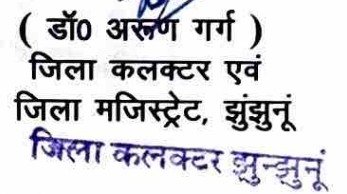 ( डॉ0 अरूण गर्ग )
जिला कलक्टर एवं
जिला मजिस्ट्रेट, झुंझुनूं
जिला कलक्टर झुन्झुनूं